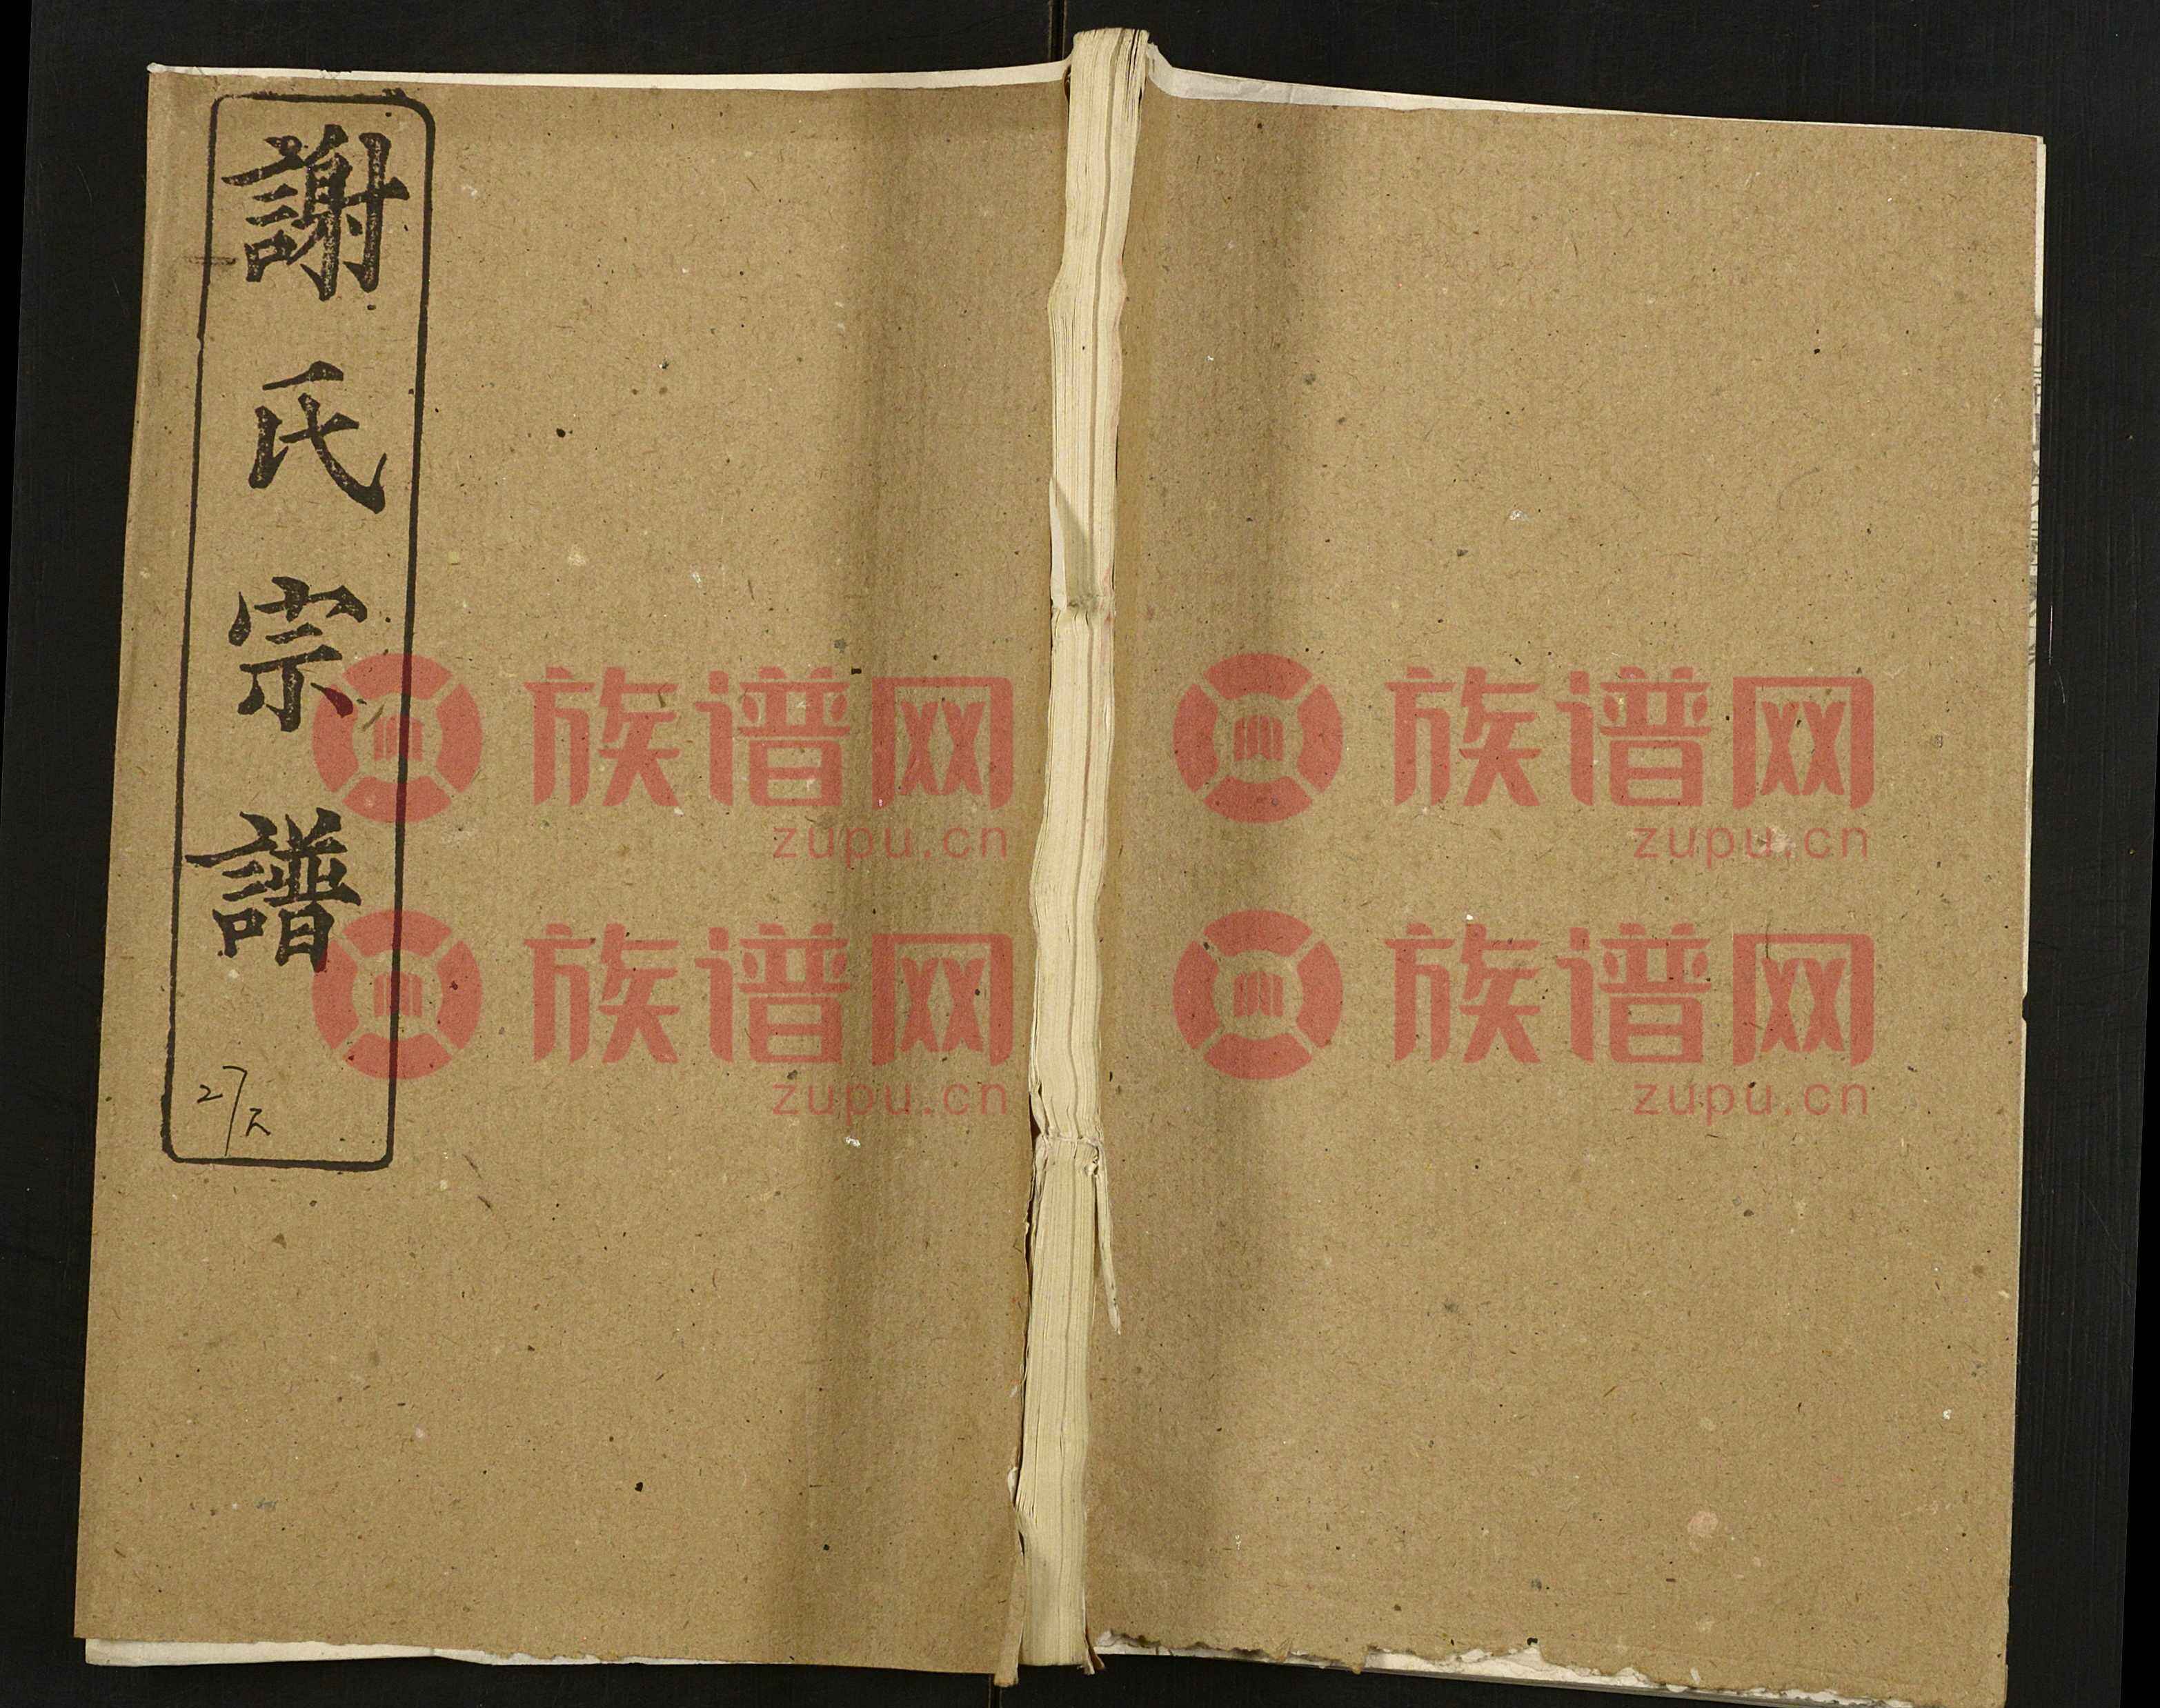 謝氏宗譜
27
族谱网 族谱网
zupu.cn zupu.cn
族谱网 族谱网
zupu.cn zupu.cn